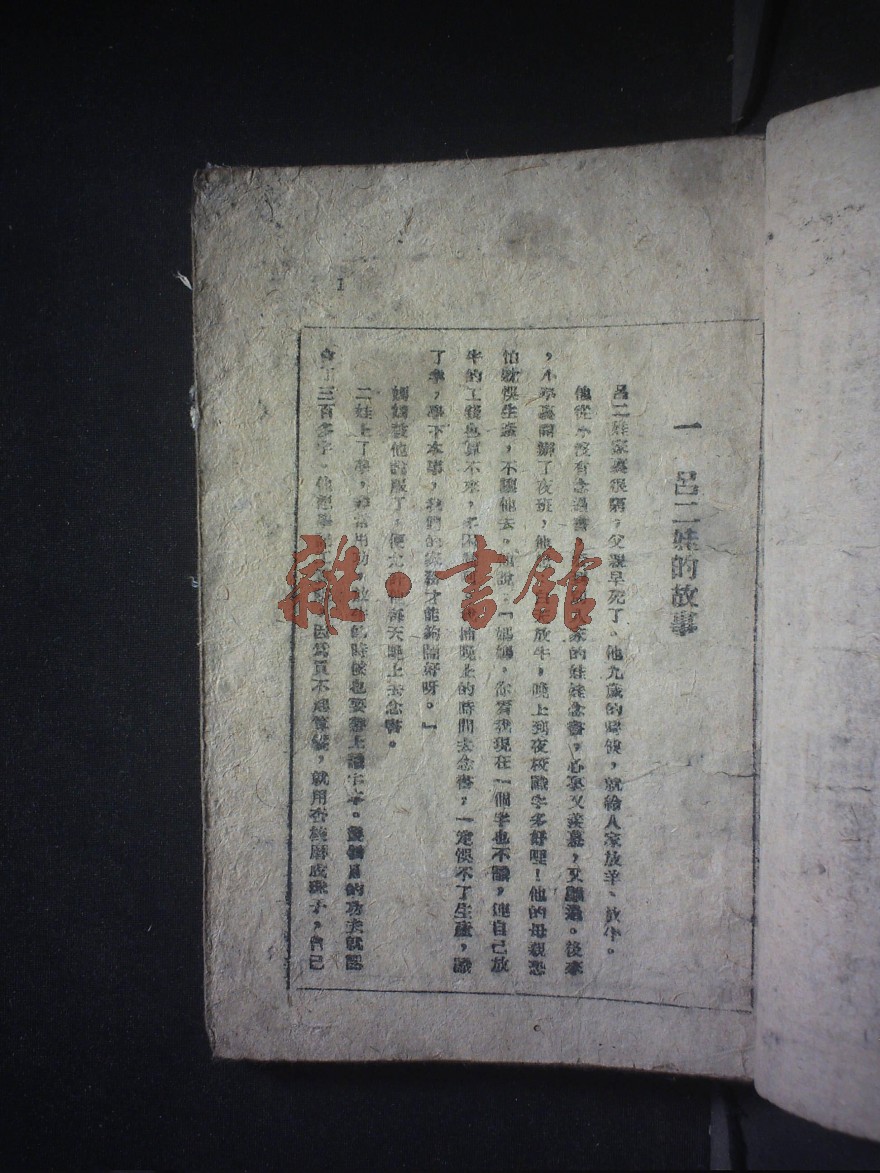 1
一 呂二娃的故事
呂二娃家裏很窮，父親早死了。他九歲的時候，就給人家放羊、放牛。
他從小沒有念過書，家的娃娃念書，心裏又羨慕，又難過。後來
，小學裏開辦了夜班，他放牛，晚上到夜校識字多好哩！他的母親恐
怕就悞生產，不讓他去。說：「媽媽，你看我現在一個字也不識，連自己放
牛的工錢也算不來，晚上的時間去念書，一定悞不了生產，識
了字，學下本事，我們的家務才能夠鬧好呀。」
媽媽被他說服了，便允許他每天晚上去念書。
二娃上了學，非常用功，放牛的時候也要帶上識字本。幾個月的功夫就認
會了三百多字。因爲買不起算盤，就用杏核磨成珠子，自己
雜·書館